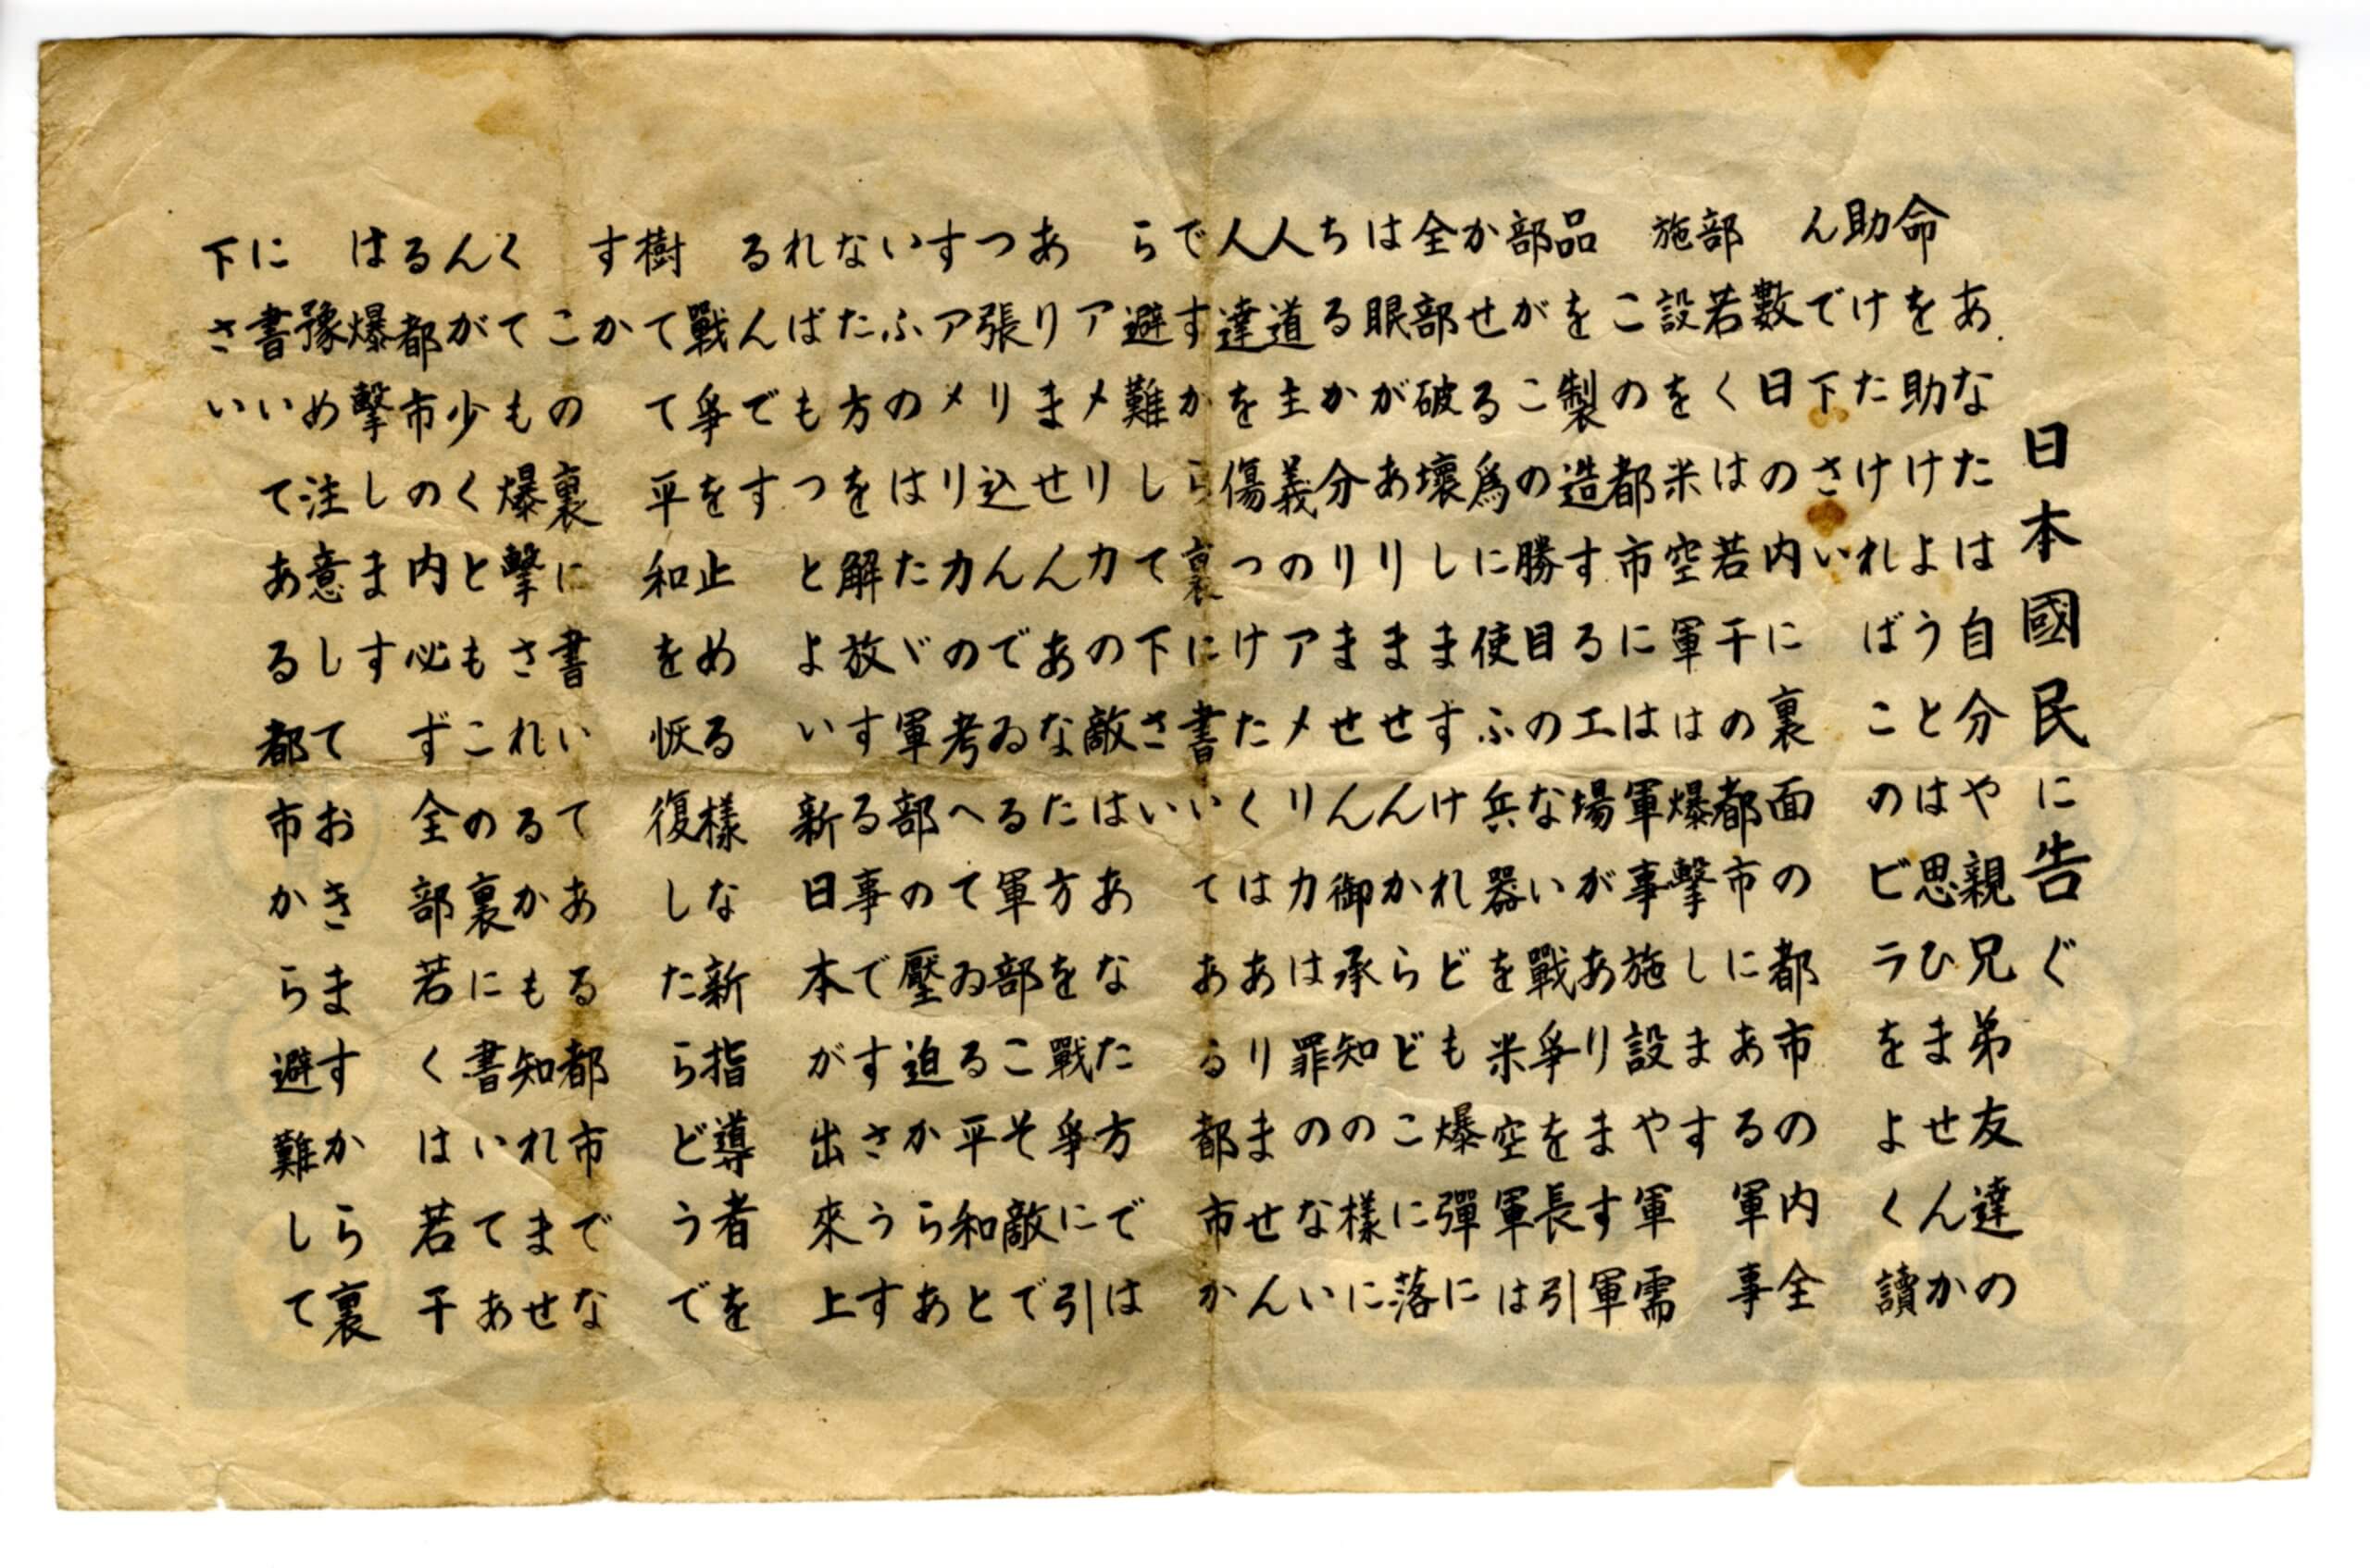 日本國民に告ぐ
あなたは自分や親兄弟友達の
命を助けようとは思ひませんか
助けたければこのビラをよく讀
んで下さい
數日の内に裏面の都市の内全
部若くは若干の都市にある軍事
施設を米空軍は爆撃します
この都市には軍事施設や軍需
品を製造する工場があります軍
部がこの勝目のない戰爭を長引
かせる爲に使ふ兵器を米空軍は
全部破壞しますけれども爆彈に
は眼がありませんからどこに落
ちるか分りません御承知の様に
人道主義のアメリカは罪のない
人達を傷つけたくはありません
ですから裏に書いてある都市か
ら避難して下さい
アメリカの敵はあなた方では
ありませんあなた方を戰爭に引
つ張り込んでゐる軍部こそ敵で
すアメリカの考へてゐる平和と
いふのはたゞ軍部の壓迫からあ
なた方を解放する事ですさうす
ればもつとよい新日本が出來上
るんです
戰爭を止める様な新指導者を
樹てて平和を恢復したらどうで
すか
この裏に書いてある都市でな
くても爆撃されるかも知れませ
んが少くともこの裏に書いてあ
る都市の内必ず全部若くは若干
は爆撃します
豫め注意しておきますから裏
に書いてある都市から避難して
下さい